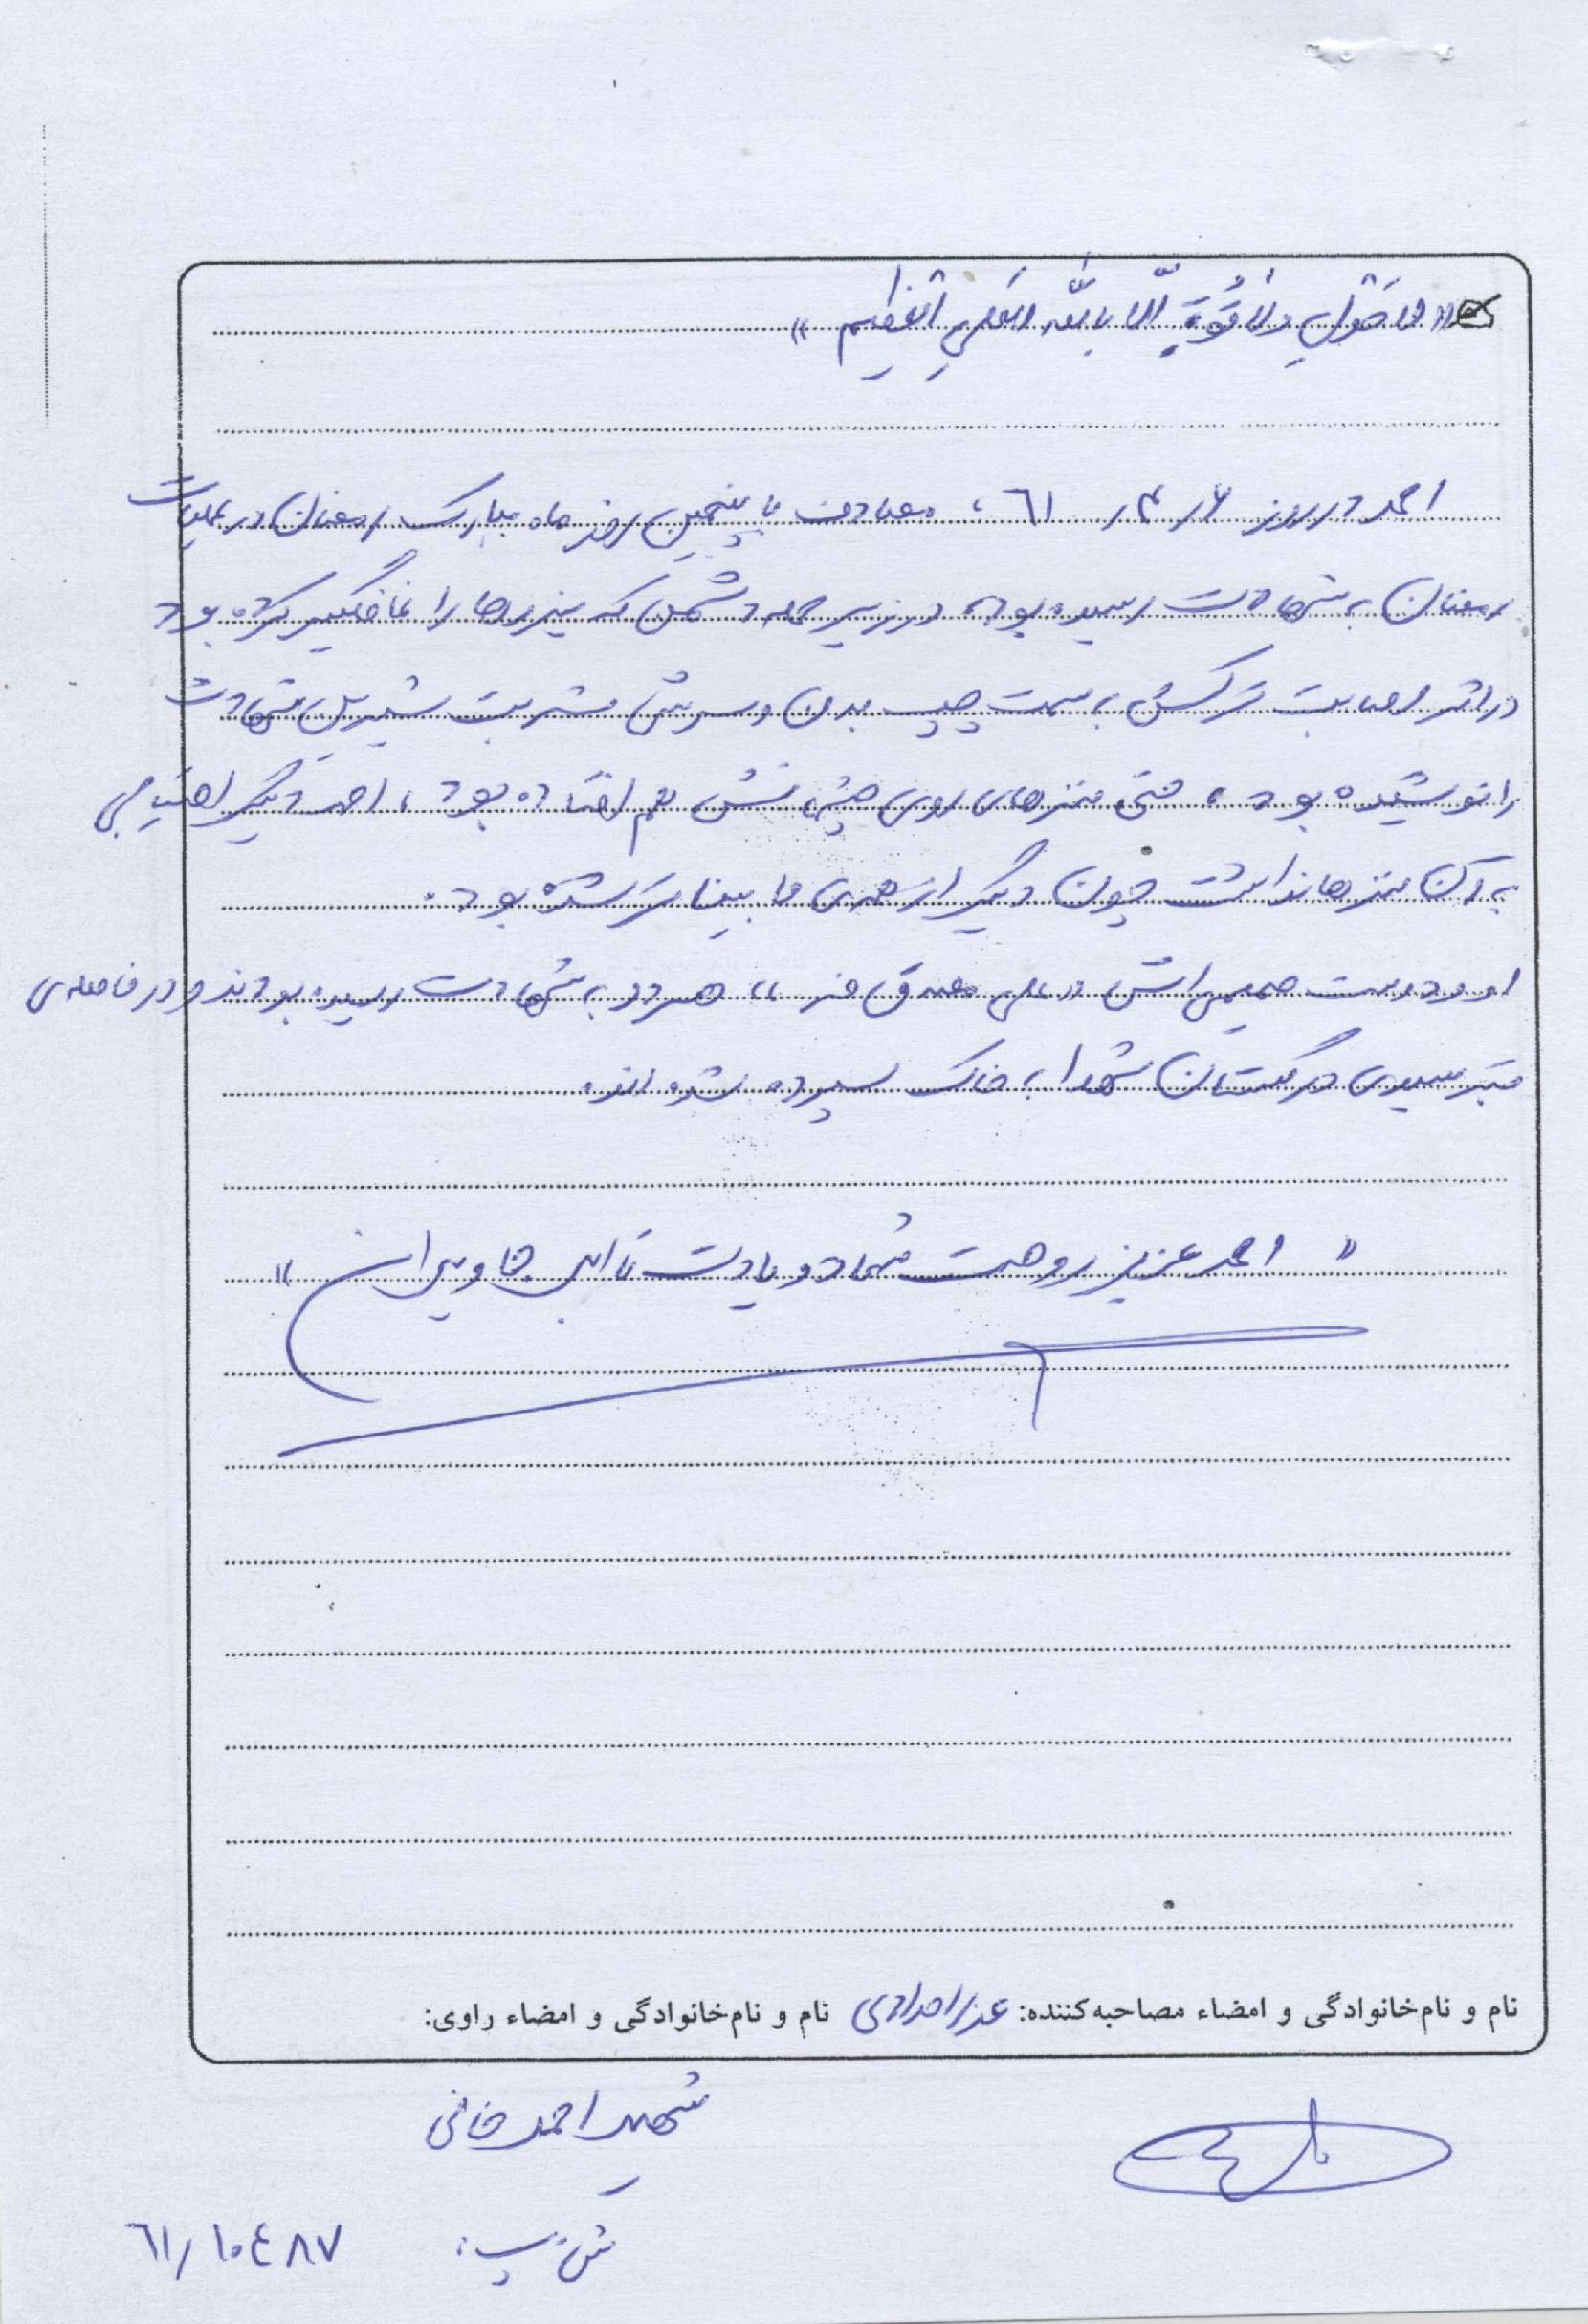 « لا حَولَ ولا قُوَّةَ اِلّا بِاللّه العَلیِ العَظیم »
احمد در روز ۶ر ۴ر ٦١ ، مصادف با پنجمین روز ماه مبارک رمضان در عملیات
رمضان به شهادت رسیده بود، در زیر حمله دشمن که نیروها را غافلگیر کرده بود
در اثر اصابت ترکش به سمت چپ بدن و سرش شربت شیرین شهادت
را نوشیده بود ، حتی لنزهای روی چشمانش هم افتاده بود ، احمد دیگر احتیاجی
به آن لنزها نداشت چون دیگر از همه‌ی ما بیناتر شده بود.
او و دوست صمیمی‌اش «علی مصدق فر » هر دو به شهادت رسیده بودند و در فاصله‌ی
قبر سیدی در گلستان شهدا به خاک سپرده شده‌اند.
« احمد عزیز روحت شاد و یادت تا ابد جاویدان »
نام و نام‌خانوادگی و امضاء مصاحبه‌کننده: عذرا مرادی نام و نام‌خانوادگی و امضاء راوی:
شهید احمد خانی
ش پ: ٦١/١٠٤٨٧